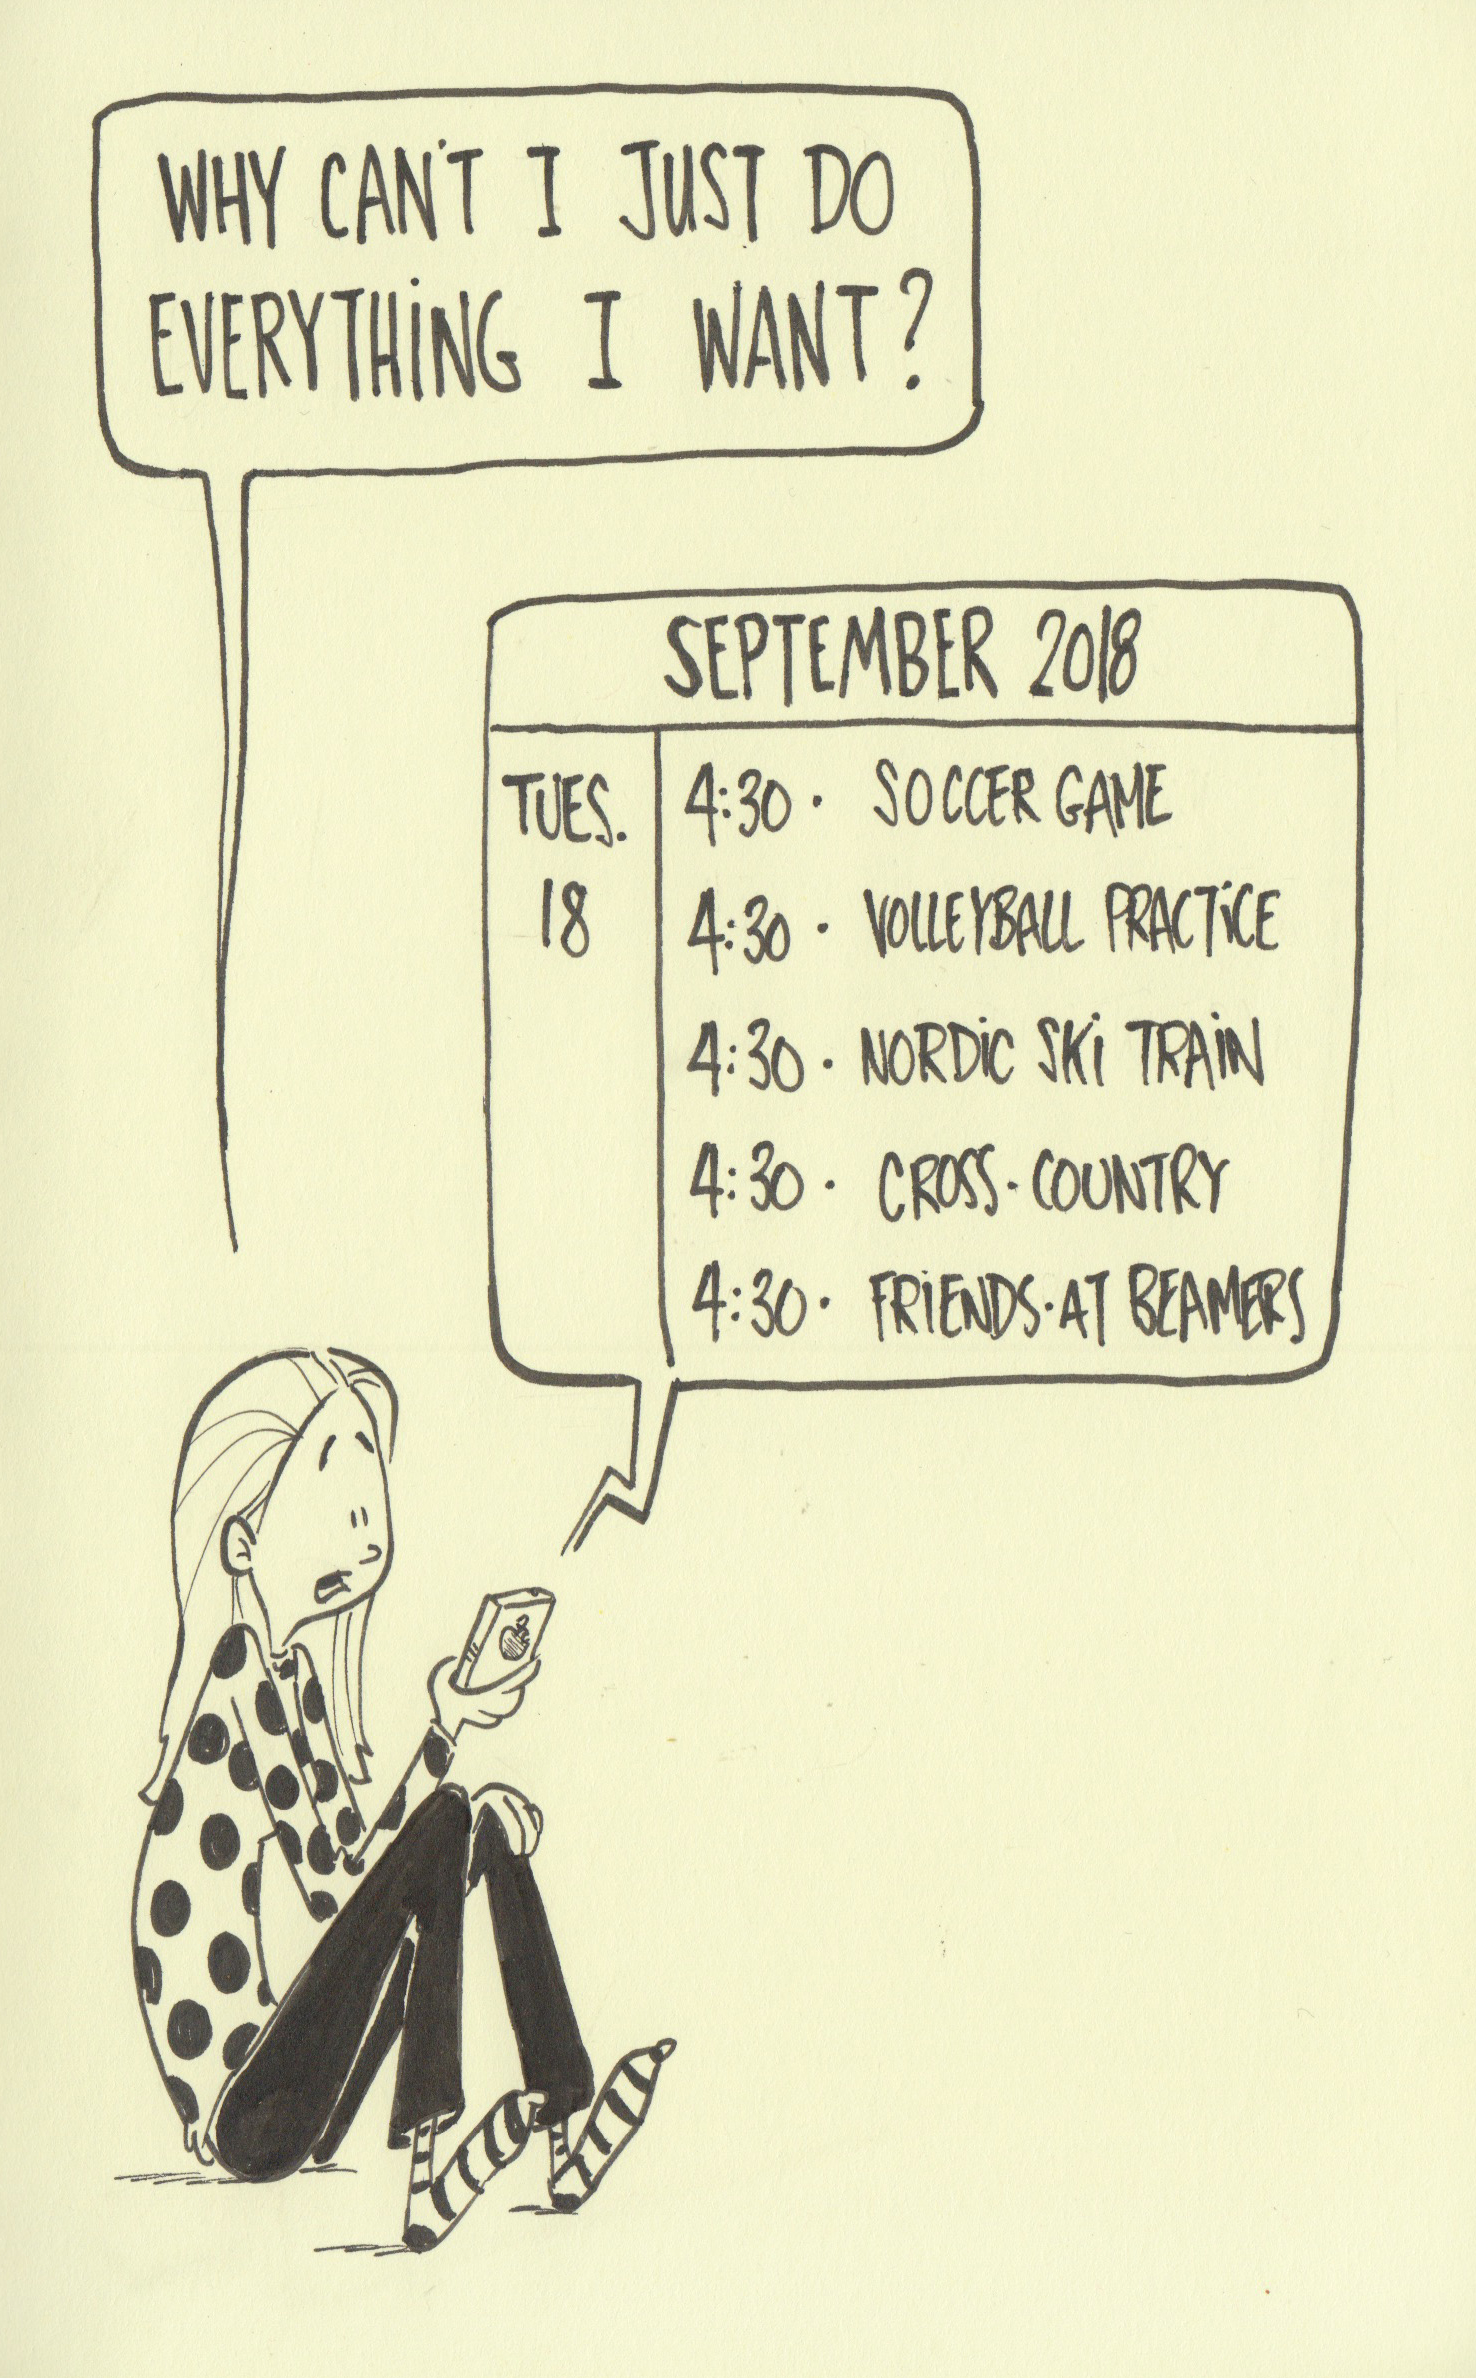 WHY CAN'T I JUST DO
EVERYTHING I WANT?
SEPTEMBER 2018
TUES.
18
4:30 · SOCCER GAME
4:30 · VOLLEYBALL PRACTICE
4:30 · NORDIC SKI TRAIN
4:30 · CROSS-COUNTRY
4:30 · FRIENDS·AT BEAMERS